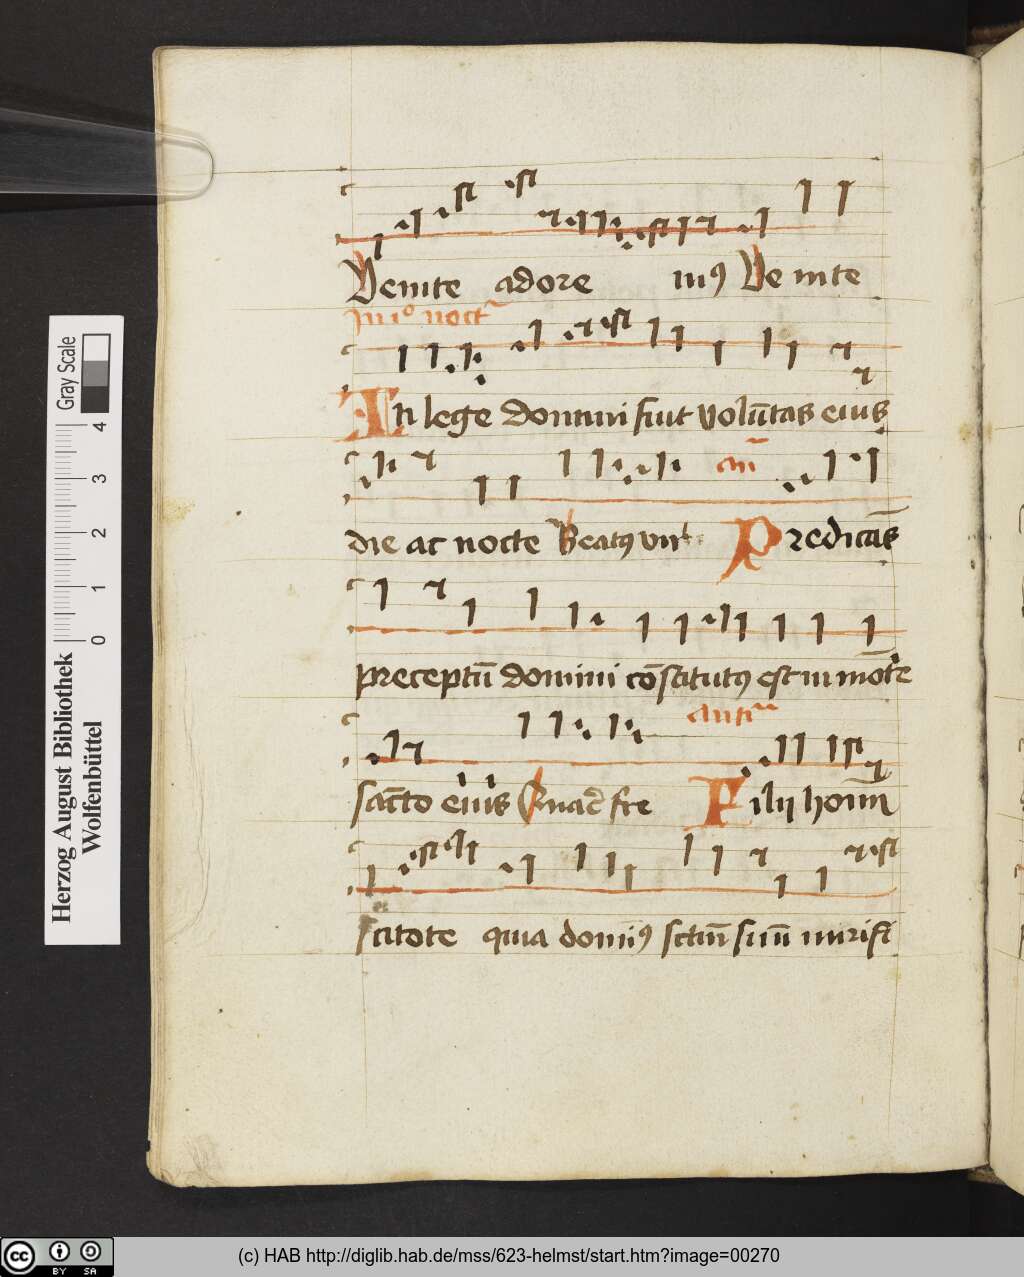 Venite adore mꝰ Ve nite
In i° noct
In lege domini fuit volūtas eius
die ac nocte Beatꝰ vir
añ
Predicās
preceptū domini cōstitutꝰ est in mōte
Antī
sāto eius Quare fre Filij homī
scitote quia domīꝰ sctm̄ suū mirifi
Gray Scale
4
3
2
1
0
Herzog August Bibliothek
Wolfenbüttel
cc BY SA
(c) HAB http://diglib.hab.de/mss/623-helmst/start.htm?image=00270